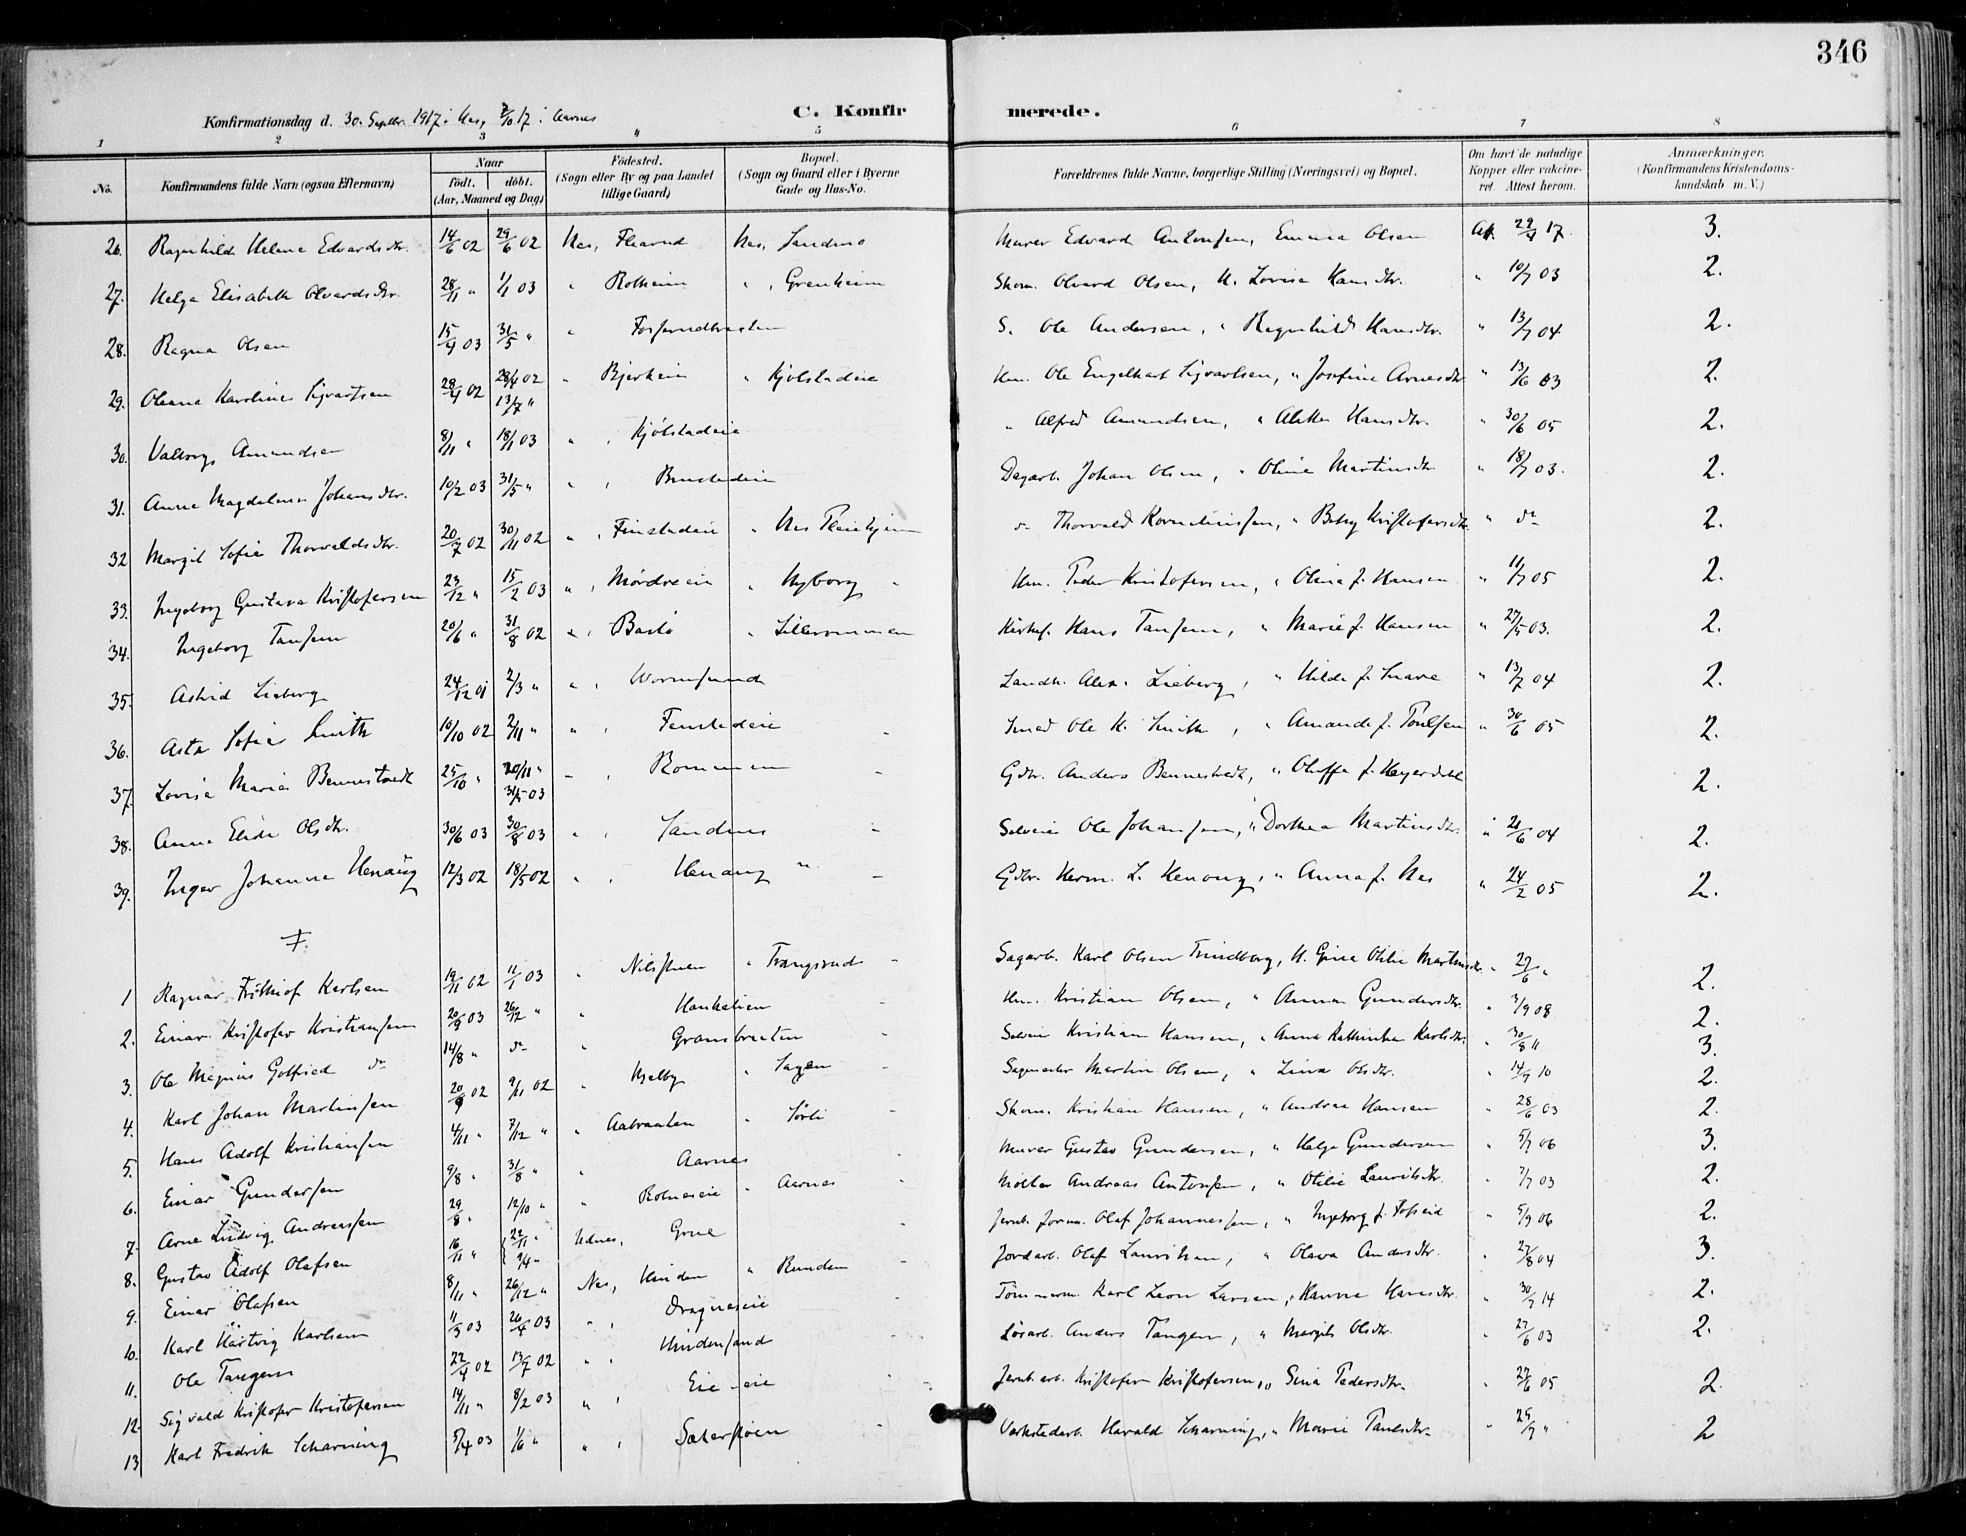 346
Konfirmationsdag d. 30. Septbr. 1917 i Nes, 7/10 17 i Aarnes
C. Konfirmerede.
1 2 3 4 5 6 7 8
No. Konfirmandens fulde Navn (ogsaa Efternavn) Naar födt. döbt. (Aar, Maaned og Dag) Födested. (Sogn eller By og paa Landet tillige Gaard) Bopæl. (Sogn og Gaard eller i Byerne Gade og Hus-No. Forældrenes fulde Navne, borgerlige Stilling (Næringsvei) og Bopæl. Om havt de naturlige Kopper eller vaccineret. Attest herom. Anmærkninger. (Konfirmandens Kristendomskundskab m. V.)
26. Ragnhild Helene Edvardsdtr. 14/6 02 29/6 02 Nes, Nes, Sandmo Murer Edvard Antonsen, Emma Olsen At. 17. 3.
27. Helga Elisabeth Olvardsdtr. 28/11 " 1/1 03 " Rotheim " , Grenheim Skom. Olvard Olsen, H. Lovise Hansdtr. " 10/7 03 2.
28. Ragna Olsen 15/4 03 31/5 " " S. Ole Andersen, " Ragnhild Hansdtr. " 13/7 04 2.
29. Oleane Karoline Sigvartsen 28/4 02 13/7 " " Bjerkeim " Kjölstadeie Hm. Ole Engelhart Sigvartsen, " Josefine Arnesdtr. " 13/6 03 2.
30. Valborg Amundsen 8/11 " 18/1 03 " , Kjölstadeie " Alfred Amundsen, " Hansdtr. " 30/6 05 2.
31. Anna Magdalena Johansdtr. 10/2 03 31/5 " " , Dagarb. Johan Olsen, " Oline Martinsdtr. " 18/7 03. 2.
32 Margit Sofie Thorvaldsdtr. 20/7 02 30/11 02 " , Finstadeie " Nes do Thorvald Korneliussen, " Betsy Kristofersdtr. " do 2.
33. Ingeborg Gustava Kristofersen 23/12 " 15/2 03 " , Mördreeie " Nyborg " Hm. Peder Kristofersen, " Olina f. Hansen " 11/7 05 2.
34. Ingeborg Tansem 20/6 " 31/8 02 " , Bastö " Lillerommen Hans Tansem, " Marie f. Hansen " 27/5 03. 2.
35. Astrid Lieberg 24/12 01 2/3 " " , Wormsund Landh. Alex. Lieberg, " Hilda f. " 13/7 04 2.
36. Asta Sofie Smith 10/10 02 2/11 " " , Fenstadeie Smed Ole H. Smith, " Amanda f. Poulsen " 30/6 05 2.
37. Lovise Marie Bennestvedt 25/10 " 20/11 " 31/5 03 " , Rommen Gdbr. Anders Bennestvedt, " Oluffa f. Heyerdahl 2.
38. Anna Elida Olsdtr. 30/6 03 30/8 03 " , Sandnes Selveier Ole Johansen, " Dorthea Martinsdtr. " 21/6 04 2.
39. Inger Johanne Henaug 12/3 02 18/5 02 " , Henaug " Gdbr. Herm. L. Henaug, " Anna f. Nes " 24/2 05 2.
1 Ragnar Frithiof Karlsen 19/11 02 11/1 03 " Nilsstuen " Trangsrud Sagarb. Karl Olsen Trindborg, H. Gina Otilie Martinsdtr. " 27/6 " 2.
2. Einar Kristofer Kristiansen 20/9 03 26/12 " " Hm. Kristian Olsen, " Anna Gundersdtr. " 3/9 08 2.
3. Ole Magnus Gotfried do 14/8 " do " Gransbraaten Selveier Kristian Hansen, " Anna Kathinka Karlsdtr. " 30/8 11 3.
4. Karl Johan Martinsen 20/9 02 9/11 02 " Hjelby " Sagen Sagmester Martin Olsen, " Lina Olsdtr. " 14/9 10 2.
5. Hans Adolf Kristiansen 4/11 " 7/12 " " Aabraaten " Sörli Skom. Kristian Hansen, " Andrea Hansen " 28/6 03 2.
6. Einar Gundersen 9/8 " 31/8 " " Aarnes Murer Gustav Gundersen, " Helga Gundersen " 5/7 06 3.
7. Arne Ludvig Andreassen 29/8 " 12/10 " " Rotneseie " Aarnes Möller Andreas Antonsen, " Otilie Lauritsdtr. " 7/7 03 2.
8. Gustav Adolf Olafsen 16/11 " 22/11 " Udnes, Grue Jernb. form. Olaf Johannessen, " Ingeborg f. " 5/9 06 2.
9. Einar Olafsen 8/11 " 26/12 " Nes, Hvinden " Runden Jordarb. Olaf Lauritsen, " Olava Andersdtr. " 27/8 04 3.
10. Karl Hartvig Karlsen 11/3 03 26/4 03 " , Dragneseie Tömmerm. Karl Leon Larsen, " Hanna Hansdtr. " 30/7 14 2.
11. Ole Tangen 22/4 02 13/7 02 " , Hvindensand Lösarb. Anders Tangen, " Margit Olsdtr. " 27/6 03 2.
12. Sigvald Kristofer Kristofersen 14/11 " 8/2 03 " , Eie-eie Jernb. arb. Kristofer Kristofersen, " Sina Pedersdtr. " 27/6 05 2
13 Karl Fredrik Scharning 5/4 03 1/6 " " , Værkstedarb. Harald Scharning, " Marie Paulsdtr. " 25/9 " 2